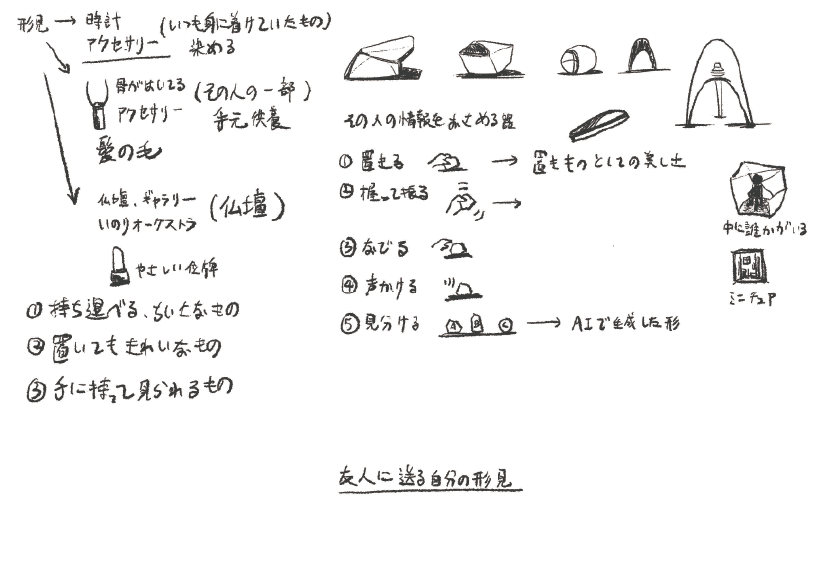 形見 → 時計 (いつも身に着けていたもの)
アクセサリー 染める
骨がはいってる (その人の一部)
アクセサリー 手元供養
髪の毛
仏壇、ギャラリー (仏壇)
いのりオーケストラ
やさしい位牌
① 持ち運べる、ちいさなもの
② 置いてもきれいなもの
③ 手に持って見られるもの
その人の情報をおさめる器
① 置きる → 置きものとしての美しさ
② 握って振る →
③ なでる
④ 声かける
⑤ 見分ける A B C → AIで生成した形
中に誰かがいる
ミニチュア
友人に送る自分の形見